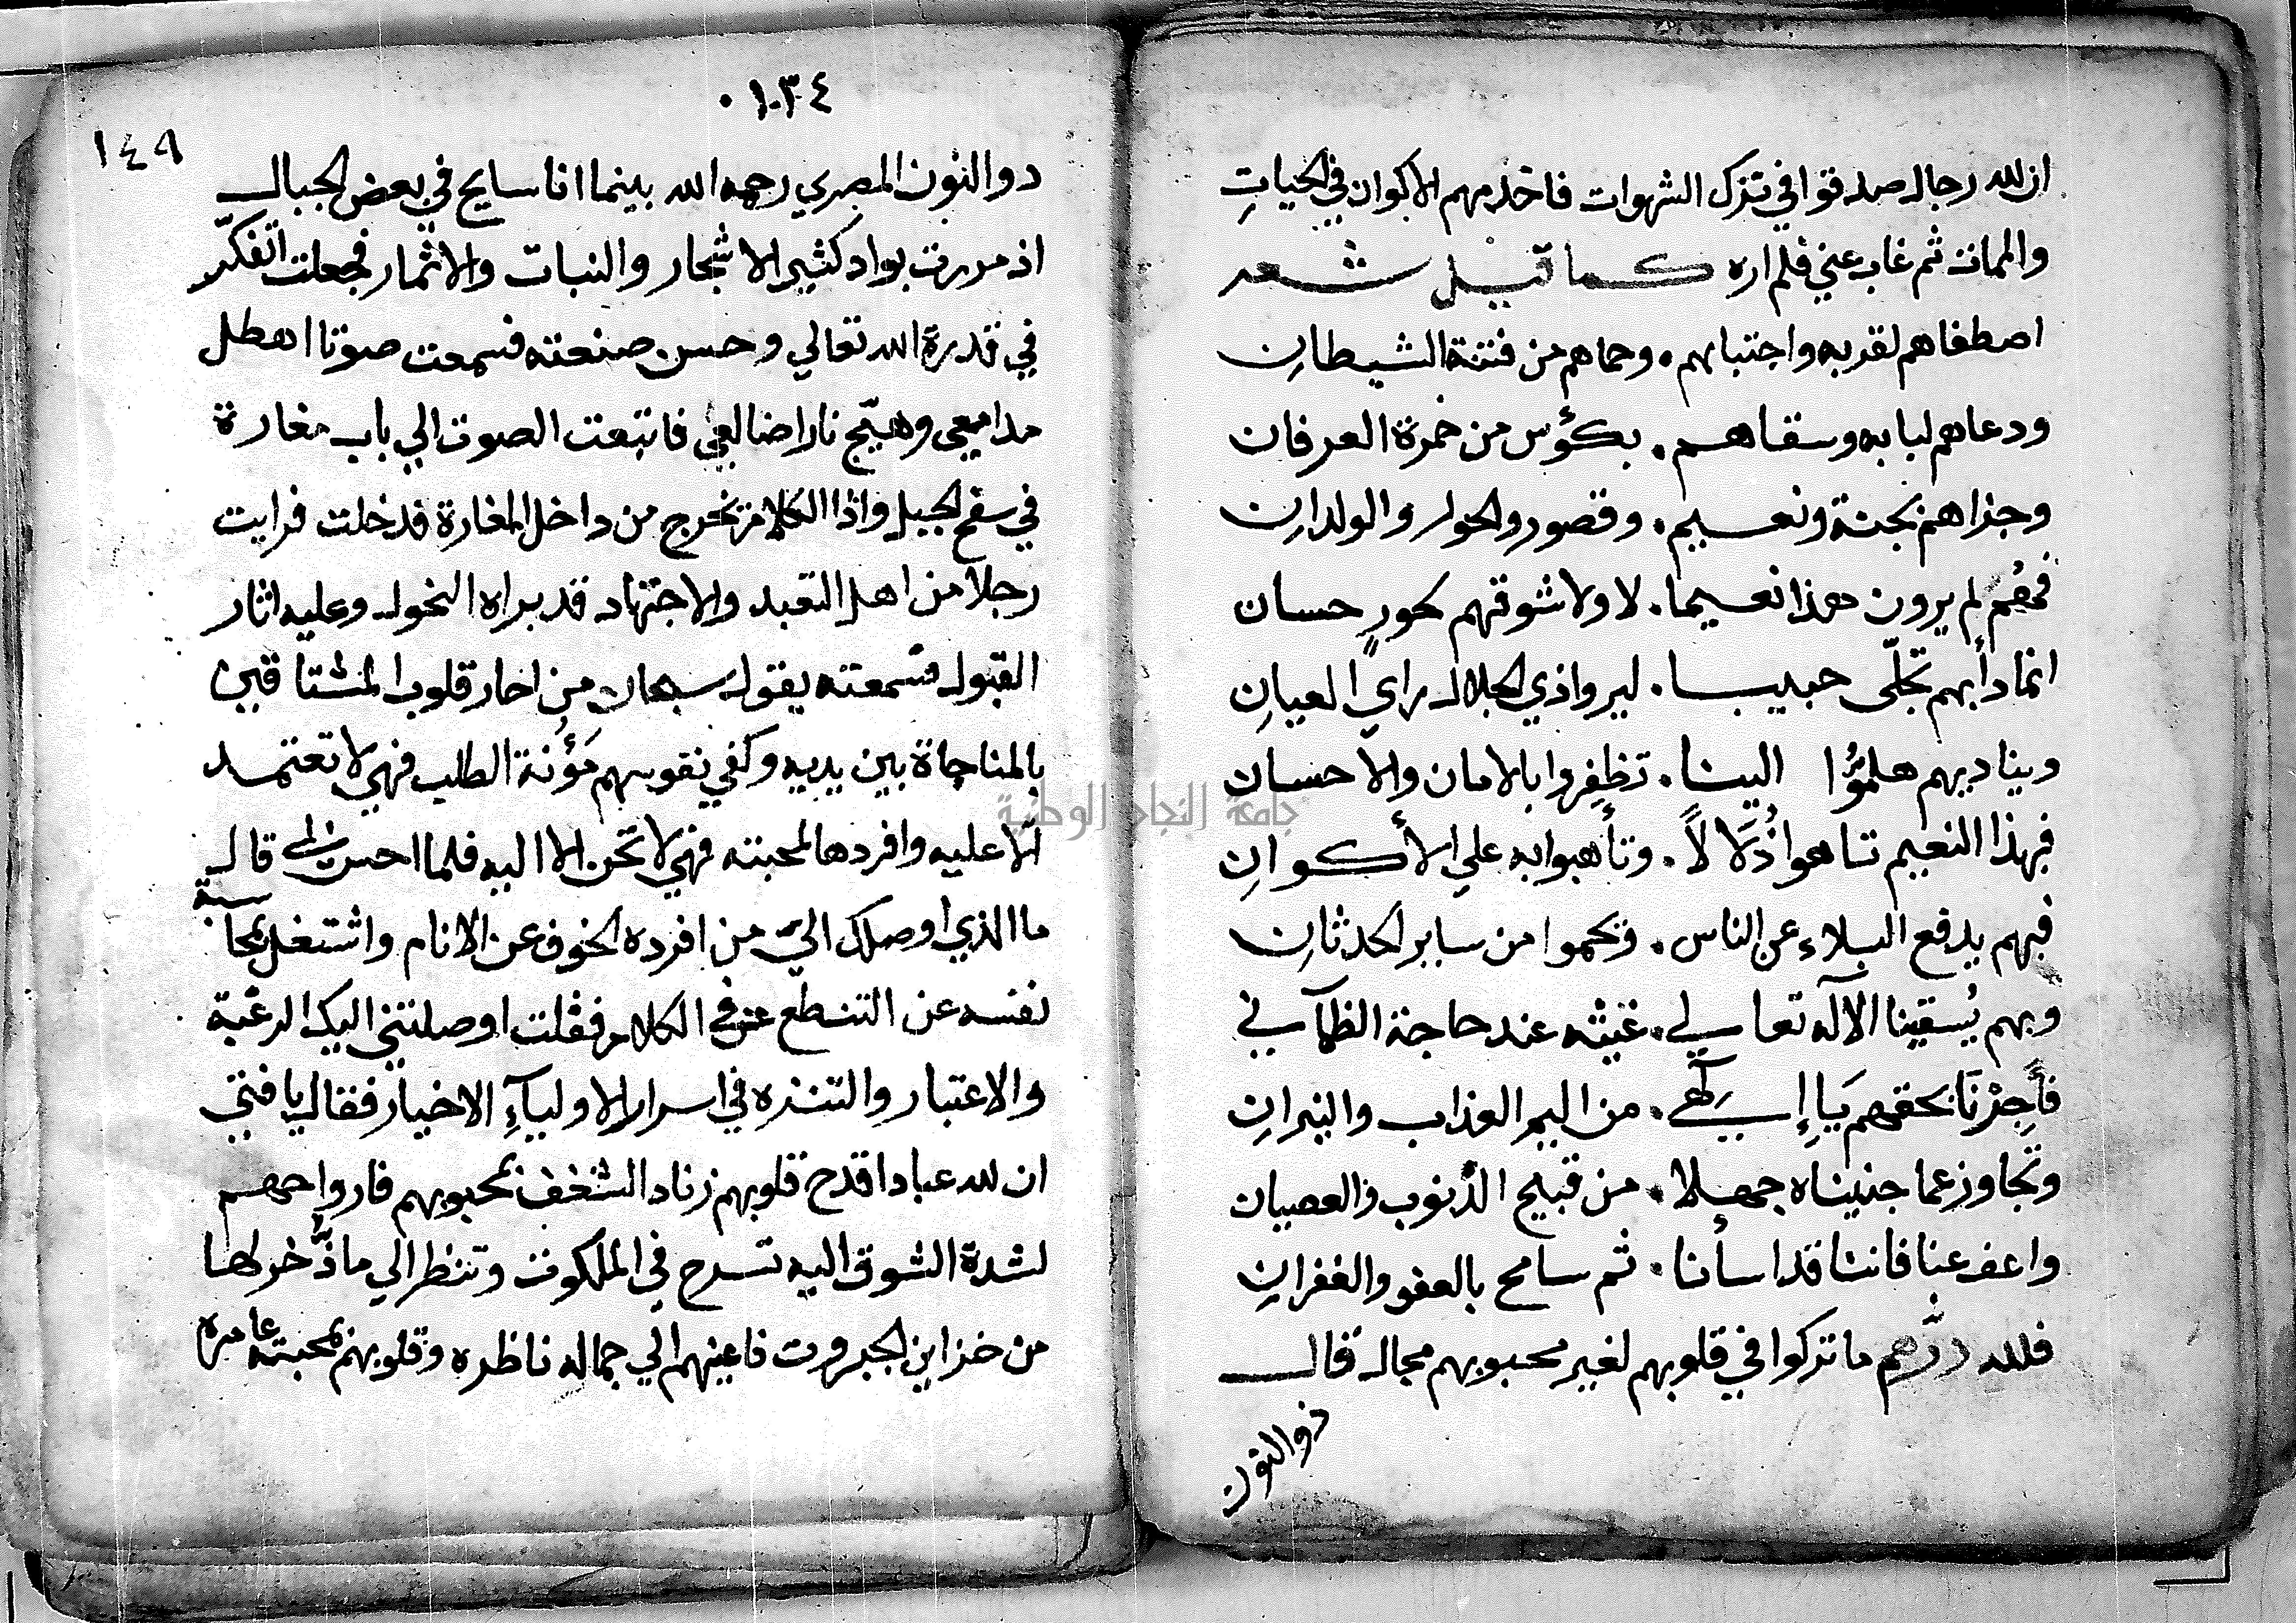 ان لله رجال صدقوا في ترك الشهوات فاخدمهم الاكوان في الحياتِ
والممات ثم غاب عني فلم اره كما قيل شعر
اصطفاهم لقربه واجتباهم . وحماهم من فتنة الشيطانِ
ودعاهم لبابه وسقاهم . بكؤس من خمرة العرفان
وجزاهم بجنة ونعيم . وقصور والحور والولدانِ
فهُم لم يرون هذا نعيما . لا ولا شوقهم لحورٍ حسان
انما دأبهم تجلّى حبيبا . ليروا ذي الجلال راي العيانِ
ويناديهم هلمُّوا الينا . تظفروا بالامان والاحسان
فبهذا النعيم تاهوا دَلالاً . وتأهبوا به علي الأكوانِ
فبهم يدفع البلاء عن الناس . وتحموا من ساير الحدثانِ
وبهم يُسقينا الآله تعالي . غيثه عند حاجة الظمآني
فأَجِرْنَا بحقهم يَا إِلَهي . من اليم العذاب والنيرانِ
وتجاوز عما جنيناه جهلا . من قبيح الذنوب والعصيان
واعف عنا فاننا قد اسأنا . ثم سامح بالعفو والغفرانِ
فلله درّهم ما تركوا في قلوبهم لغير محبوبهم مجال قال
ذو النون
١٠٣٤
١٤٩
دوا النون المصري رحمه الله بينما انا سايح في بعض الجبال
اذ مررت بواد كثير الاشجار والنبات والاثمار فجعلت اتفكّر
في قدرة الله تعالي وحسن صنعته فسمعت صوتا اهطل
مدامعي وهيّج نار اضالعي فاتبعت الصوت الي باب مغارة
في سفح الجبل واذا الكلام يخرج من داخل المغارة فدخلت فرايت
رجلا من اهل التعبد والاجتهاد قد براه النحول وعليه اثار
القبول فسمعته يقول سبحان من احار قلوب المشتاقين
بالمناجاة بين يديه وكفي نفوسهم مَؤُنة الطلب فهي لا تعتمد
الا عليه وافردها لمحبته فهي لا تحن الا اليه فلما احس بي قال
ما الذي اوصلك اليّ من افرده الخوف عن الانام واشتغل بمحاسبة
نفسه عن التنطع في الكلام فقلت اوصلتني اليك الرغبة
والاعتبار والتنزه في اسرار الاوليآءِ الاخيار فقال يا فتي
ان لله عبادا قدح قلوبهم زناد الشغف بمحبوبهم فارواحهم
لشدة الشوق اليه تسرح في الملكوت وتنظر الي ما ذُّخر لها
من خزاين الجبروت فاعينهم الي جماله ناظره وقلوبهم بمحبته عامره
جامعة النجاح الوطنية